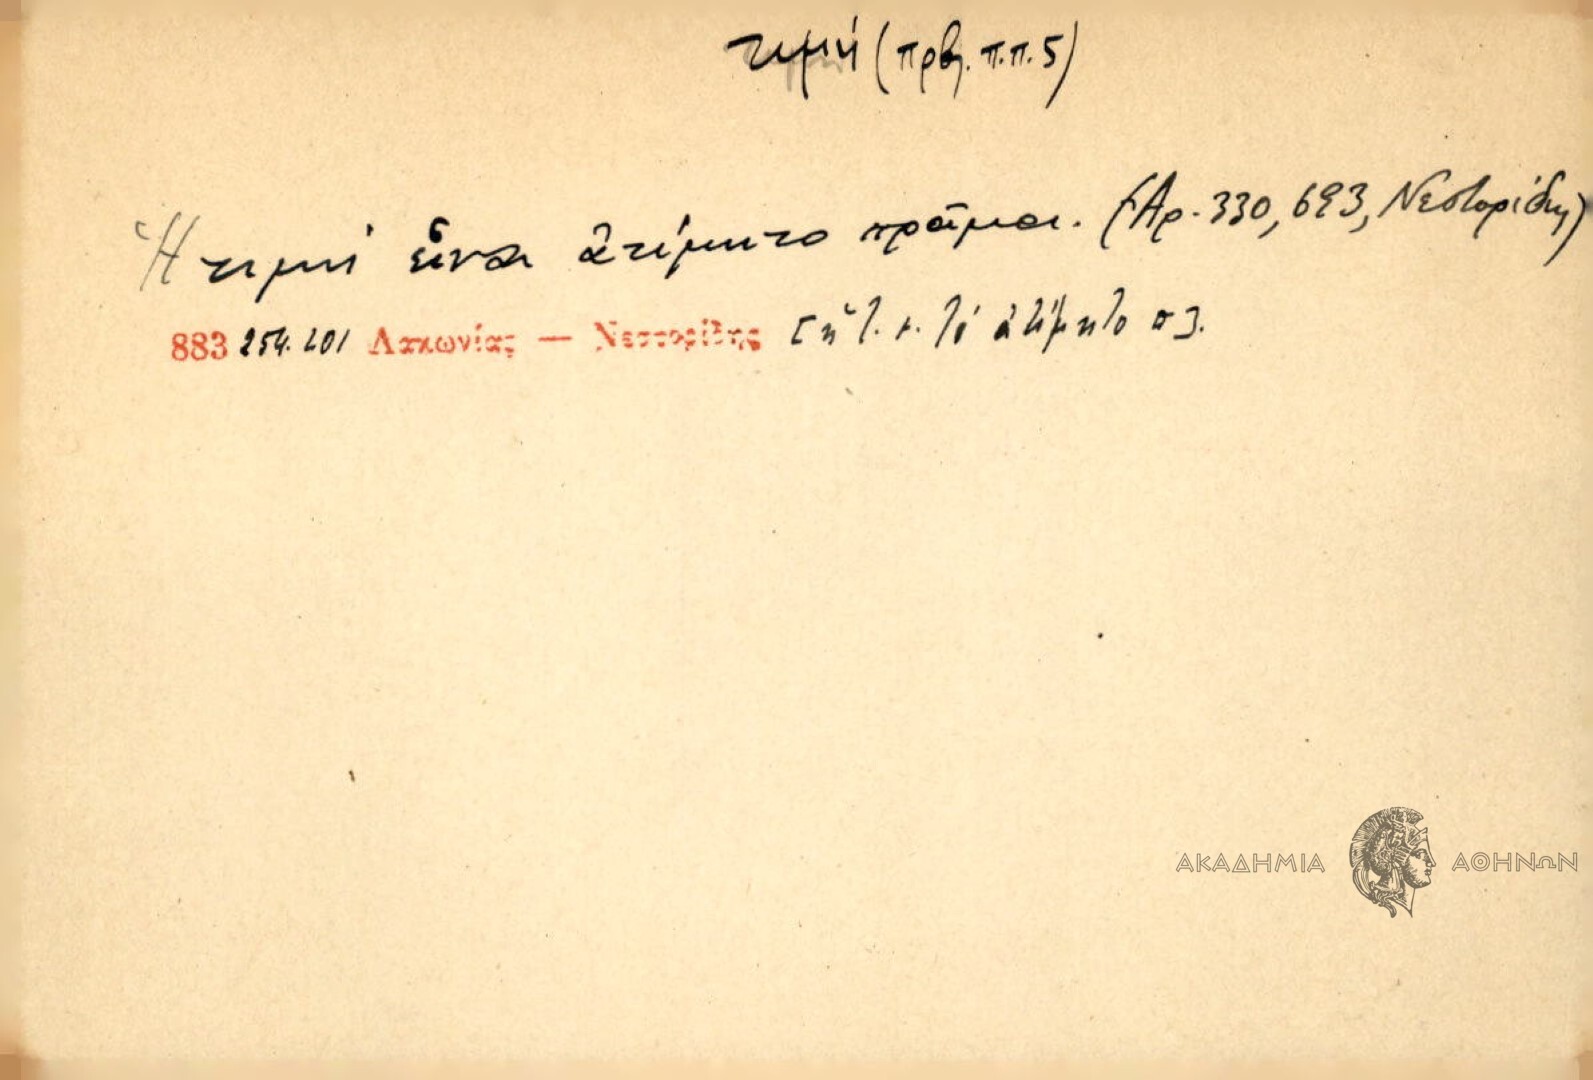 τιμή (πρβ. π.π. 5)
Ἡ τιμὴ εἶναι ἀτίμητο πρᾶμα. (Ἀρ. 330, 693, Νεστορίδης)
883 254. 201 Λακωνίας — Νεστορίδης [ἡ τ. κ. τό ἀτίμητο π].
ΑΚΑΔΗΜΙΑ ΑΘΗΝΩΝ